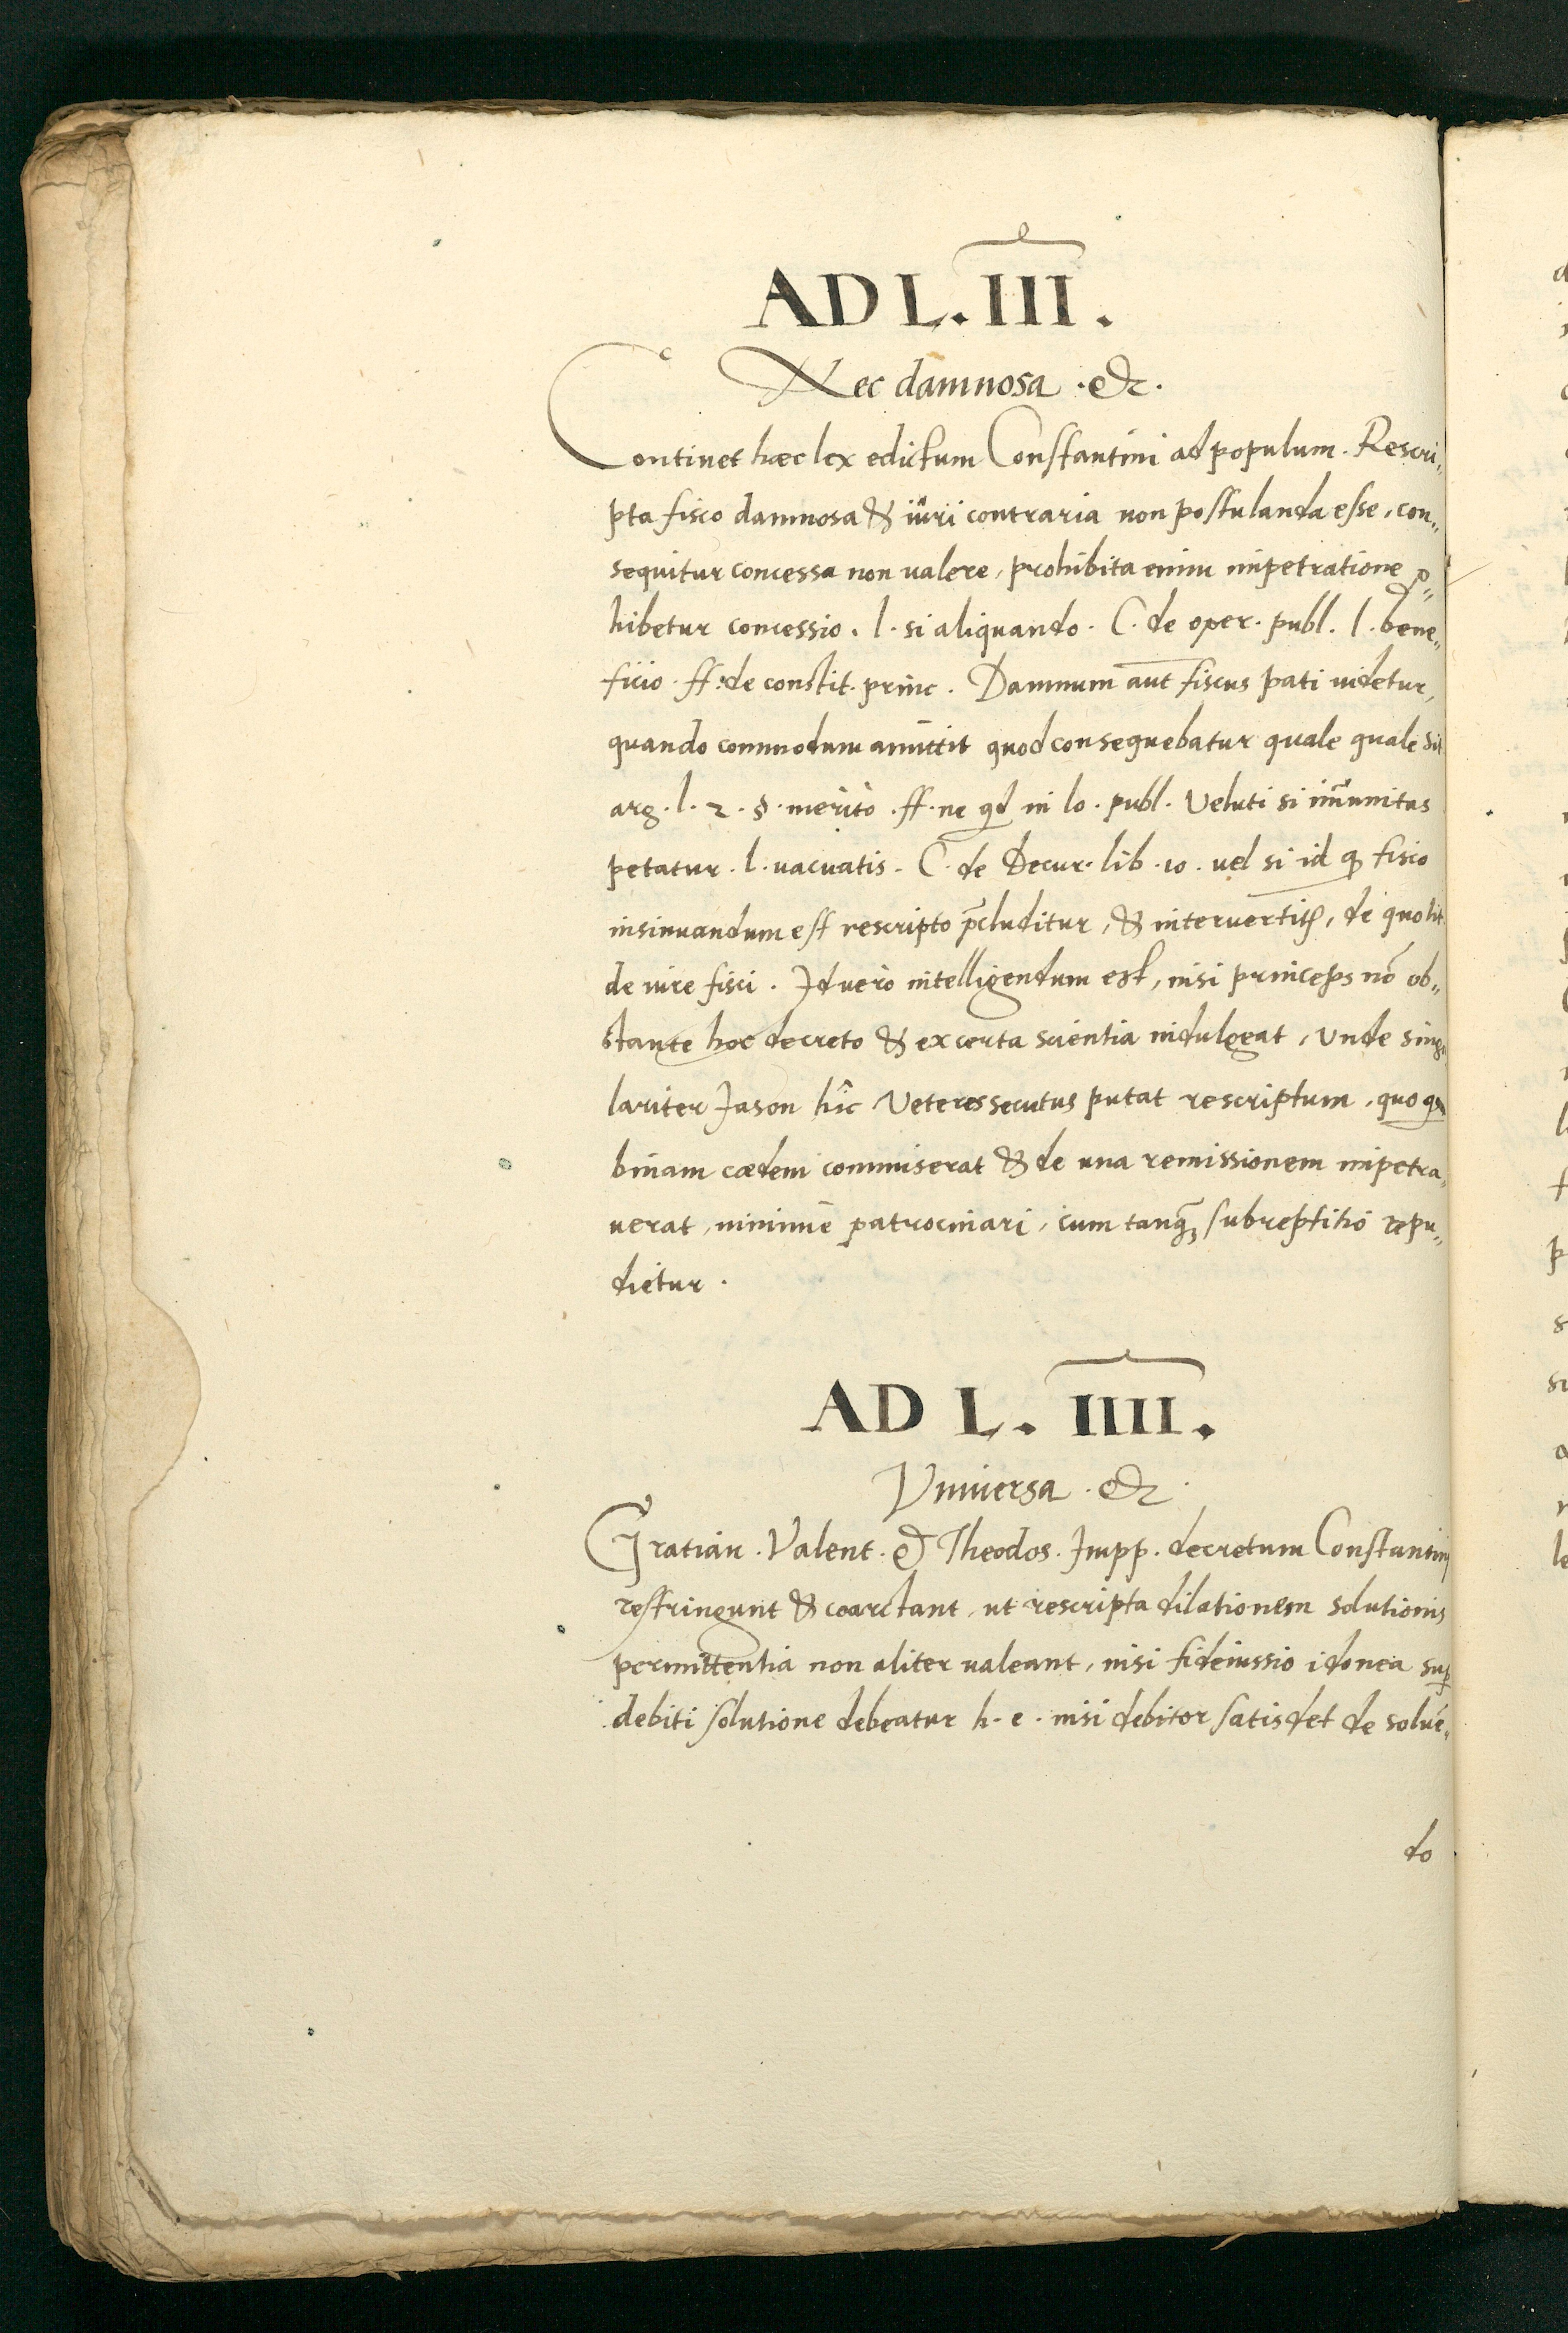 AD L. III.
Nec damnosa .&c.
Continet hæc lex edictum Constantini ad populum. Rescri„
pta fisco damnosa & iuri contraria non postulanda esse, con„
sequitur concessa non ualere, prohibita enim impetratione ꝓ„
hibetur concessio. l. si aliquando. C. de oper. publ. l. bene„
ficio. ff. de constit. princ. Damnum aūt fiscus pati uidetur,
quando commodum amittit quod consequebatur quale quale sit
arg. l. 2. §. merito. ff. ne qd in lo. publ. Veluti si im̄unitas
petatur. l. uacuatis. C. de Decur. lib. 10. uel si id qꝫ fisco
insinuandum est rescripto p̄cluditur, & interuertitꝭ, de quo tit.
de iure fisci. Id uero intelligendum est, nisi princeps nō ob„
stante hoc decreto & ex certa scientia indulgeat, Vnde singu
lariter Jason hîc Veteres secutus putat rescriptum, quo qs
binam cædem commiserat & de una remissionem impetra„
uerat, minimè patrocinari, cum tanq̄ꝫ subreptitiò repu„
dietur.
AD L. IIII.
Vniuersa .&c.
Gratian. Valent. & Theodos. Impp. decretum Constantini
restringunt & coarctant, ut rescripta dilationem solutionis
permittentia non aliter ualeant, nisi fideiussio idonea suꝑ
debiti solutione debeatur h. e. nisi debitor satisdet de soluē„
do